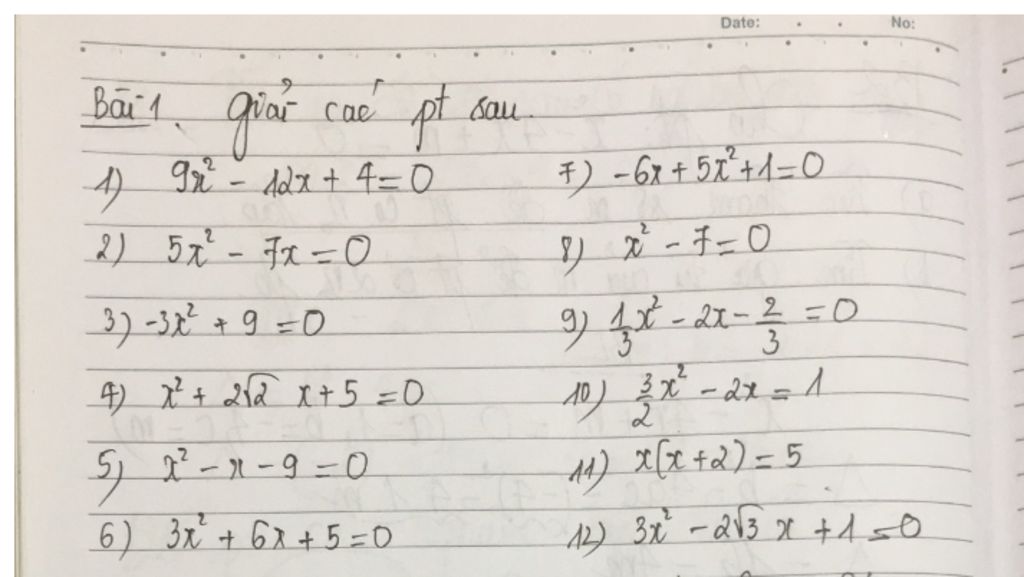 Date: No:
Bài 1. Giải các pt sau.
1) 9x² - 12x + 4 = 0
2) 5x² - 7x = 0
3) -3x² + 9 = 0
4) x² + 2√2 x + 5 = 0
5) x² - x - 9 = 0
6) 3x² + 6x + 5 = 0
7) -6x + 5x² + 1 = 0
8) x² - 7 = 0
9) 1/3 x² - 2x - 2/3 = 0
10) 3/2 x² - 2x = 1
11) x(x + 2) = 5
12) 3x² - 2√3 x + 1 = 0